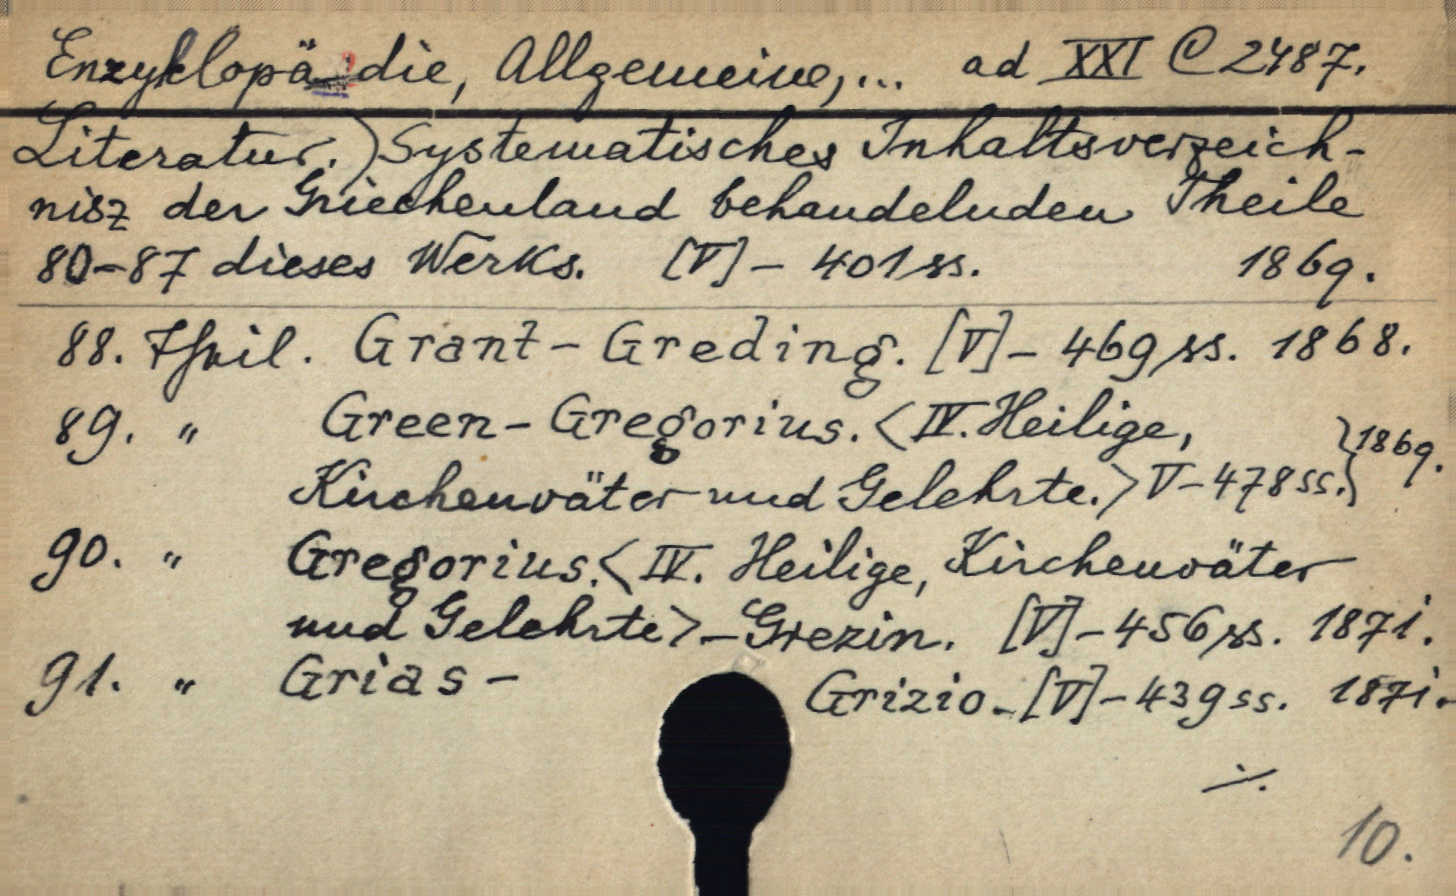 Enzyklopädie, Allgemeine,... ad XXI C 2487.
Literatur.) Systematisches Inhaltsverzeich-
nisz der Griechenland behandelnden Theile
80-87 dieses Werks. [V] - 401 ss. 1869.
88. Theil. Grant - Greding. [V] - 469 ss. 1868.
89. " Green - Gregorius. <IV. Heilige,
Kirchenväter und Gelehrte.> V - 478 ss. } 1869.
90. " Gregorius. <IV. Heilige, Kirchenväter
und Gelehrte> - Grezin. [V] - 456 ss. 1871.
91. " Grias - Grizio. [V] - 439 ss. 1871.
./.
10.